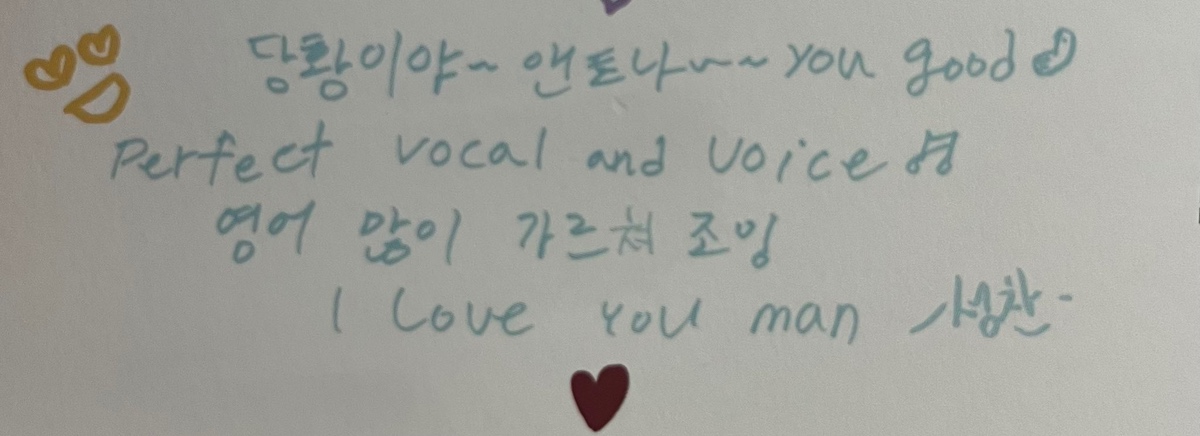 당황이야~ 앤톤나~~~ You good
Perfect vocal and voice♬
영어 많이 가르쳐 조잉
I Love You man 성찬-